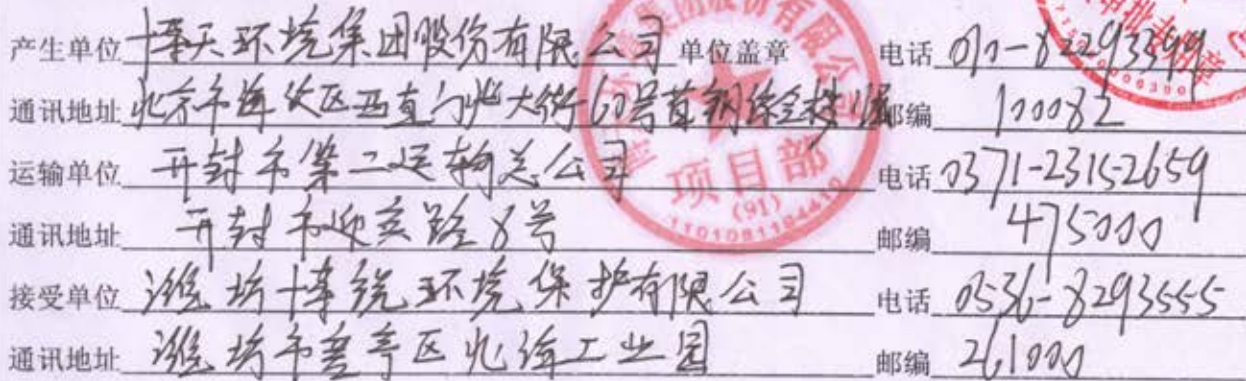 产生单位 博天环境集团股份有限公司 单位盖章 电话 010-82293399
通讯地址 北京市海淀区西直门北大街60号首钢综合楼 邮编 100082
运输单位 开封市第二运输总公司 电话 0371-23152659
通讯地址 开封市迎宾路8号 邮编 475000
接受单位 潍坊博锐环境保护有限公司 电话 0536-8293555
通讯地址 潍坊市寒亭区北海工业园 邮编 261000
股份有限公司
项目部
(91)